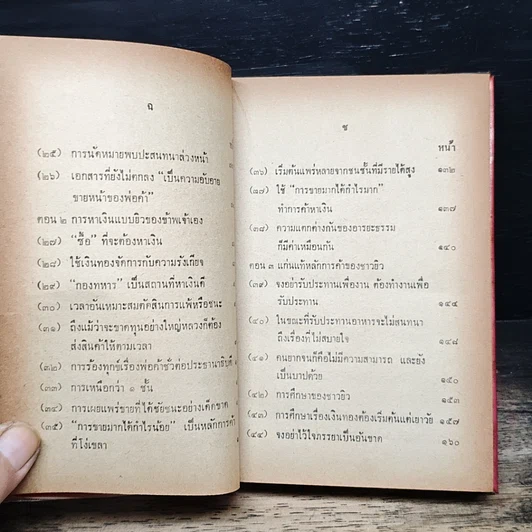 ฉ
(๒๕) การนัดหมายพบปะสนทนาล่วงหน้า
(๒๖) เอกสารที่ยังไม่ตกลง "เป็นความอับอาย
ขายหน้าของพ่อค้า"
ตอน ๒ การหาเงินแบบยิวของข้าพเจ้าเอง
(๒๗) "ซื้อ" ที่จะต้องหาเงิน
(๒๘) ใช้เงินทองจัดการกับความรังเกียจ
(๒๙) "กองทหาร" เป็นสถานที่หาเงินดี
(๓๐) เวลาอันเหมาะสมตัดสินการแพ้หรือชนะ
(๓๑) ถึงแม้ว่าจะขาดทุนอย่างใหญ่หลวงก็ต้อง
ส่งสินค้าให้ตามเวลา
(๓๒) การร้องทุกข์เรื่องพ่อค้าชั่วต่อประธานาธิบดี
(๓๓) การเหนือกว่า ๑ ชั้น
(๓๔) การเผยแพร่ขายที่ได้ชัยชนะอย่างเด็ดขาด
(๓๕) "การขายมากได้กำไรน้อย" เป็นหลักการค้า
ที่โง่เขลา
ช
หน้า
(๓๖) เริ่มต้นแพร่หลายจากชนชั้นที่มีรายได้สูง ๑๓๒
(๓๗) ใช้ "การขายมากได้กำไรมาก"
ทำการค้าหาเงิน ๑๓๗
(๓๘) ความแตกต่างกันของอารยะธรรม
ก็มีค่าเหมือนกัน ๑๔๐
ตอน ๓ แก่นแท้หลักการค้าของชาวยิว
(๓๙) จงอย่ารับประทานเพื่องาน ต้องทำงานเพื่อ
รับประทาน ๑๔๔
(๔๐) ในขณะที่รับประทานอาหารจะไม่สนทนา
ถึงเรื่องที่ไม่สบายใจ ๑๔๘
(๔๑) คนยากจนก็คือไม่มีความสามารถ และยัง
เป็นบาปด้วย ๑๕๐
(๔๒) การศึกษาของชาวยิว ๑๕๓
(๔๓) การศึกษาเรื่องเงินทองต้องเริ่มต้นแต่เยาวัย ๑๕๗
(๔๔) จงอย่าไว้ใจภรรยาเป็นอันขาด ๑๖๐